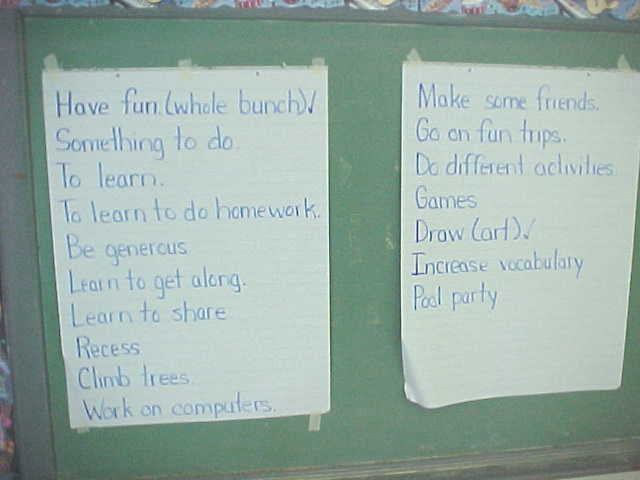 Have fun. (whole bunch)✓
Something to do.
To learn.
To learn to do homework.
Be generous
Learn to get along.
Learn to share
Recess
Climb trees.
Work on computers.
Make some friends.
Go on fun trips.
Do different activities.
Games
Draw (art)✓
Increase vocabulary
Pool party